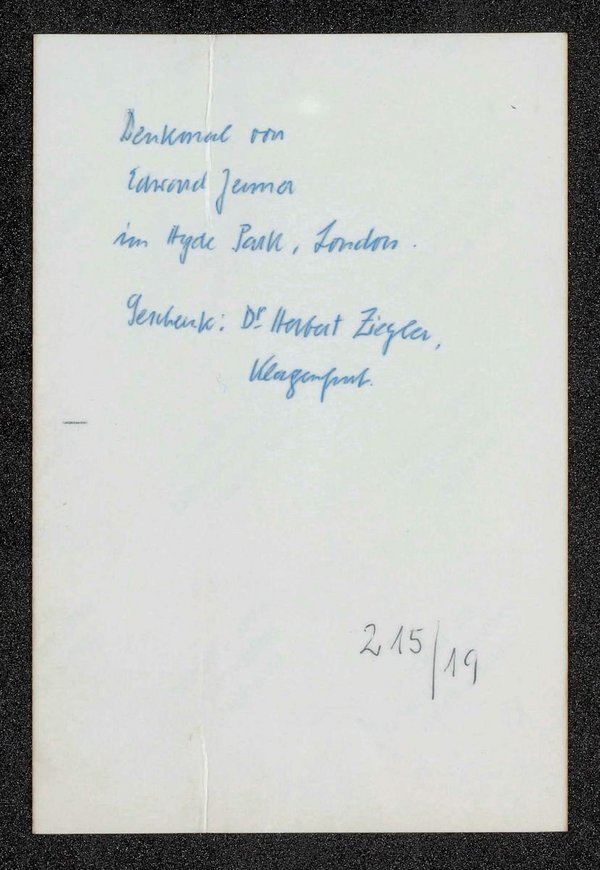 Denkmal von
Edward Jenner
im Hyde Park, London.
Geschenk: Dr Herbert Ziegler,
Klagenfurt.
215/19